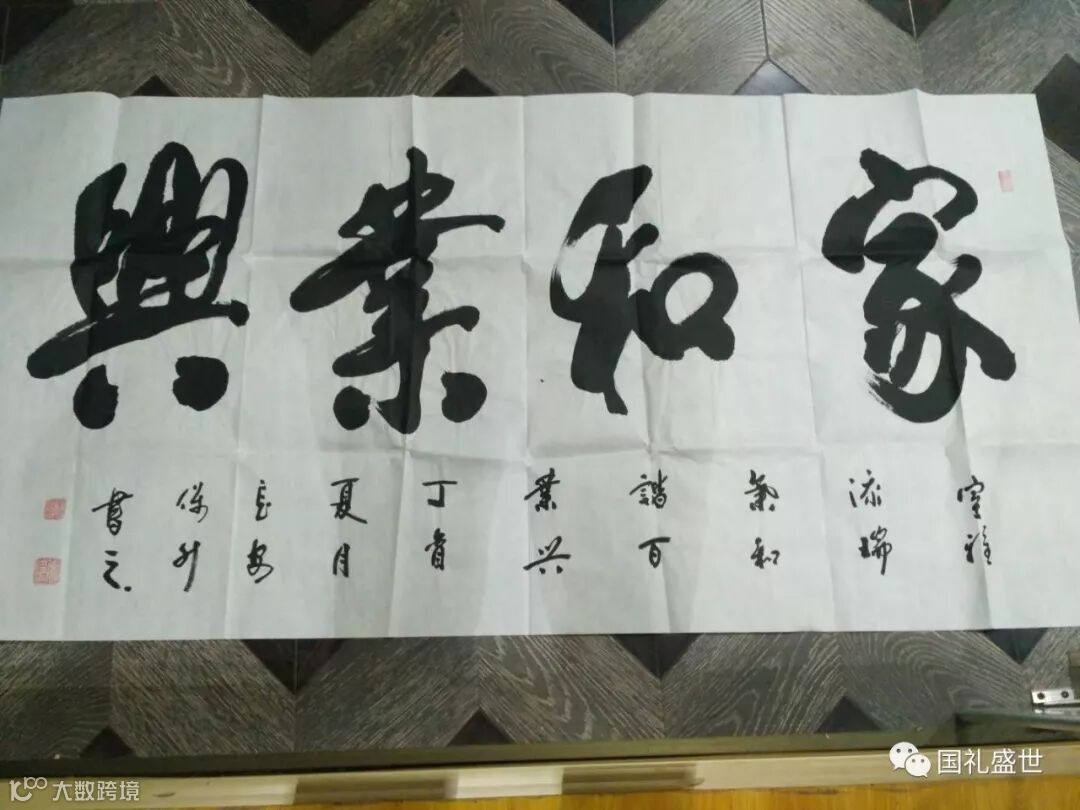 家和業興
室祥
流瑞
氣和
諧百
業兴
丁酉
夏月
长安
保升
書之
国礼盛世
大数跨境